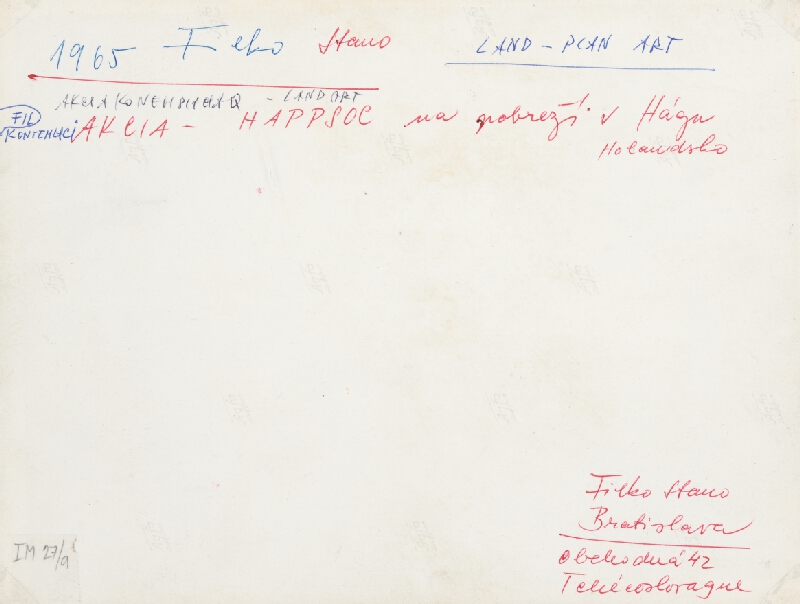 1965 Filko Stano LAND - PLAN ART
AKCIA - LAND ART
FIL
AKCIA - HAPPSOC na pobreží v Hágu
Holandsko
Filko Stano
Bratislava
Obchodná 42
Tchécoslovaque
IM 27/a